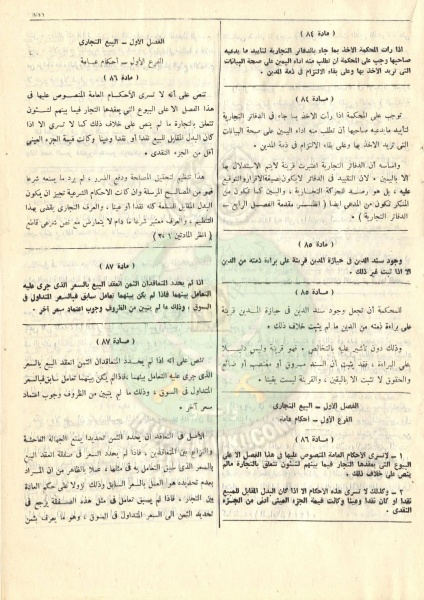 ( مادة ٨٤ )
اذا رأت المحكمة الاخذ بما جاء بالدفاتر التجارية لتأييد ما يدعيه
صاحبها وجب على المحكمة ان تطلب منه اداء اليمين على صحة البيانات
التى تريد الاخذ بها وعلى بقاء الالتزام فى ذمة المدين .
( مادة ٨٤ )
توجب على المحكمة اذا رأت الاخذ بما جاء فى الدفاتر التجارية
لتأييد ما يدعيه صاحبها أن تطلب منه اداء اليمين على صحة البيانات
التى تريد الاخذ بها ، وعلى بقاء الالتزام فى ذمة المدين .
وأساسه أن الدفاتر التجارية اعتبرت قرينة لايتم الاستدلال بها
الا باليمين ، لأن التقييد فى الدفاتر لايكون بصيغة الاقرار والتوقيع
عليه ، بل هو رصد للحركة التجارية ، واليمين كما تكون من
المنكر تكون من المدعى ايضا ( انظر مقدمة الفصل الرابع ــ
الدفاتر التجارية ) .
مادة ٨٥
وجود سند الدين فى حيازة المدين قرينة على براءة ذمته من الدين
الا اذا ثبت غير ذلك .
( مادة ٨٥ )
للمحكمة أن تجعل وجود سند الدين فى حيازة المدين قرينة
على براءة ذمته من الدين ما لم يثبت خلاف ذلك .
وذلك دون تأشير عليه بالتخالص ، فهو قرينة وليس دليلا
على البراءة ، فقد يثبت أن السند مسروق أو مغتصب أو ضائع
والحقوق لا تثبت الا باليقين ، والقرينة ليست يقينا .
الفصل الاول ــ البيع التجارى
الفرع الاول ــ احكام عامة
( مادة ٨٦ )
١ ــ لاتسرى الاحكام العامة المنصوص عليها فى هذا الفصل الا على
البيوع التى يعقدها التجار فيما بينهم لشئون تتعلق بالتجارة مالم
ينص على خلاف ذلك .
٢ ــ وكذلك لا تسرى هذه الاحكام الا اذا كان البدل المقابل للمبيع
نقدا أو كان نقدا وعينا وكانت قيمة الجزء العينى أدنى من الجزء
النقدى .
الفصل الاول ــ البيع التجارى
الفرع الاول ــ احكام عامة
( مادة ٨٦ )
تنص على أنه لا تسرى الأحكام العامة المنصوص عليها فى
هذا الفصل الا على البيوع التى يعقدها التجار فيما بينهم لشئون
تتعلق بالتجارة ما لم ينص على خلاف ذلك كما لا تسرى الا اذا
كان البدل المقابل للمبيع نقدا أو نقدا وعينا وكانت قيمة الجزء العينى
أقل من الجزء النقدى .
هذا تنظيم لتحقيق المصلحة ودفع الضرر ، لم يرد ما يمنعه شرعا
فهو من المصالح المرسلة وان كانت الاحكام الشرعية تجيز ان يكون
البدل المقابل للسلعة كله نقدا أو عينا ، والعرف التجارى يقضى بهذا
التنظيم ، والعرف معتبر شرعا ما دام لا يتعارض مع نص شرعى قاطع
مادة ٨٧
اذا لم يحدد المتعاقدان الثمن انعقد البيع بالسعر الذى جرى عليه
التعامل بينهما فاذا لم يكن بينهما تعامل سابق فبالسعر المتداول فى
السوق ، وذلك ما لم يتبين من الظروف وجوب اعتماد سعر آخر .
( مادة ٨٧ )
تنص على أنه اذا لم يحدد المتعاقدان الثمن انعقد البيع بالسعر
الذى جرى عليه التعامل بينهما ، فاذا لم يكن بينهما تعامل سابق فبالسعر
المتداول فى السوق ، وذلك ما لم يتبين من الظروف وجوب اعتماد
سعر آخر .
الاصل فى التعاقد أن يحدد الثمن تحديدا يمنع الجهالة الفاحشة
والنزاع بين المتعاقدين ، فاذا لم يحدد السعر فى صفقة انعقد البيع
بالسعر الذى سبق التعامل به فى مثلها ، عملا بالظاهر من ان المراد
بعدم تحديده هو العمل بالسعر السابق وذلك نزولا على حكم العادة
بين التجار ، فاذا لم يسبق تعامل فى مثل هذه الصفقة يرجع فى
تحديد الثمن الى السعر المتداول فى السوق ، وهو ما يعرف بثمن